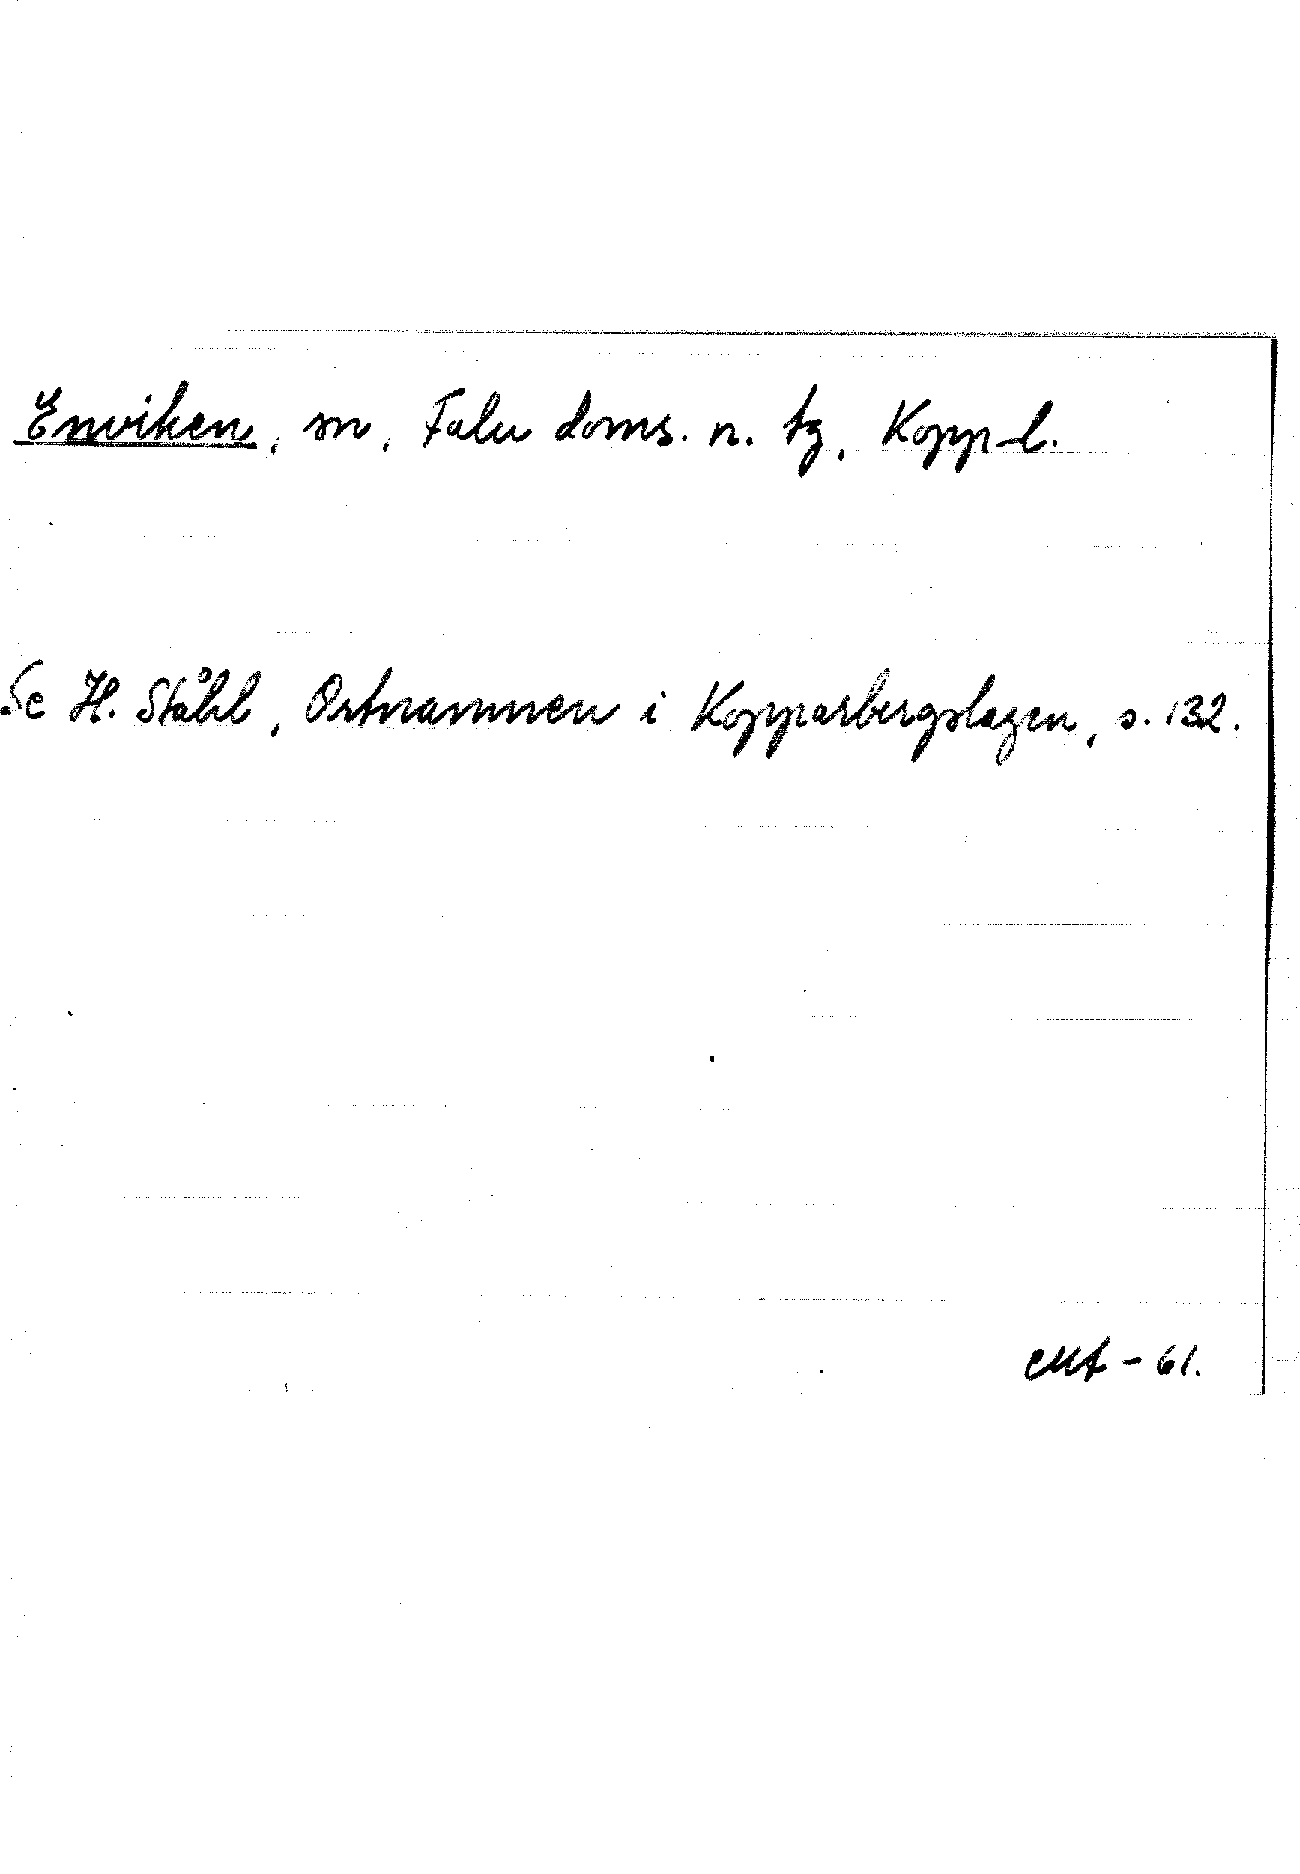 Enviken, sn, Falu doms. n. tg, Kopp-l.
Se H. Ståhl, Ortnamnen i Kopparbergslagen, s. 132.
- 61.